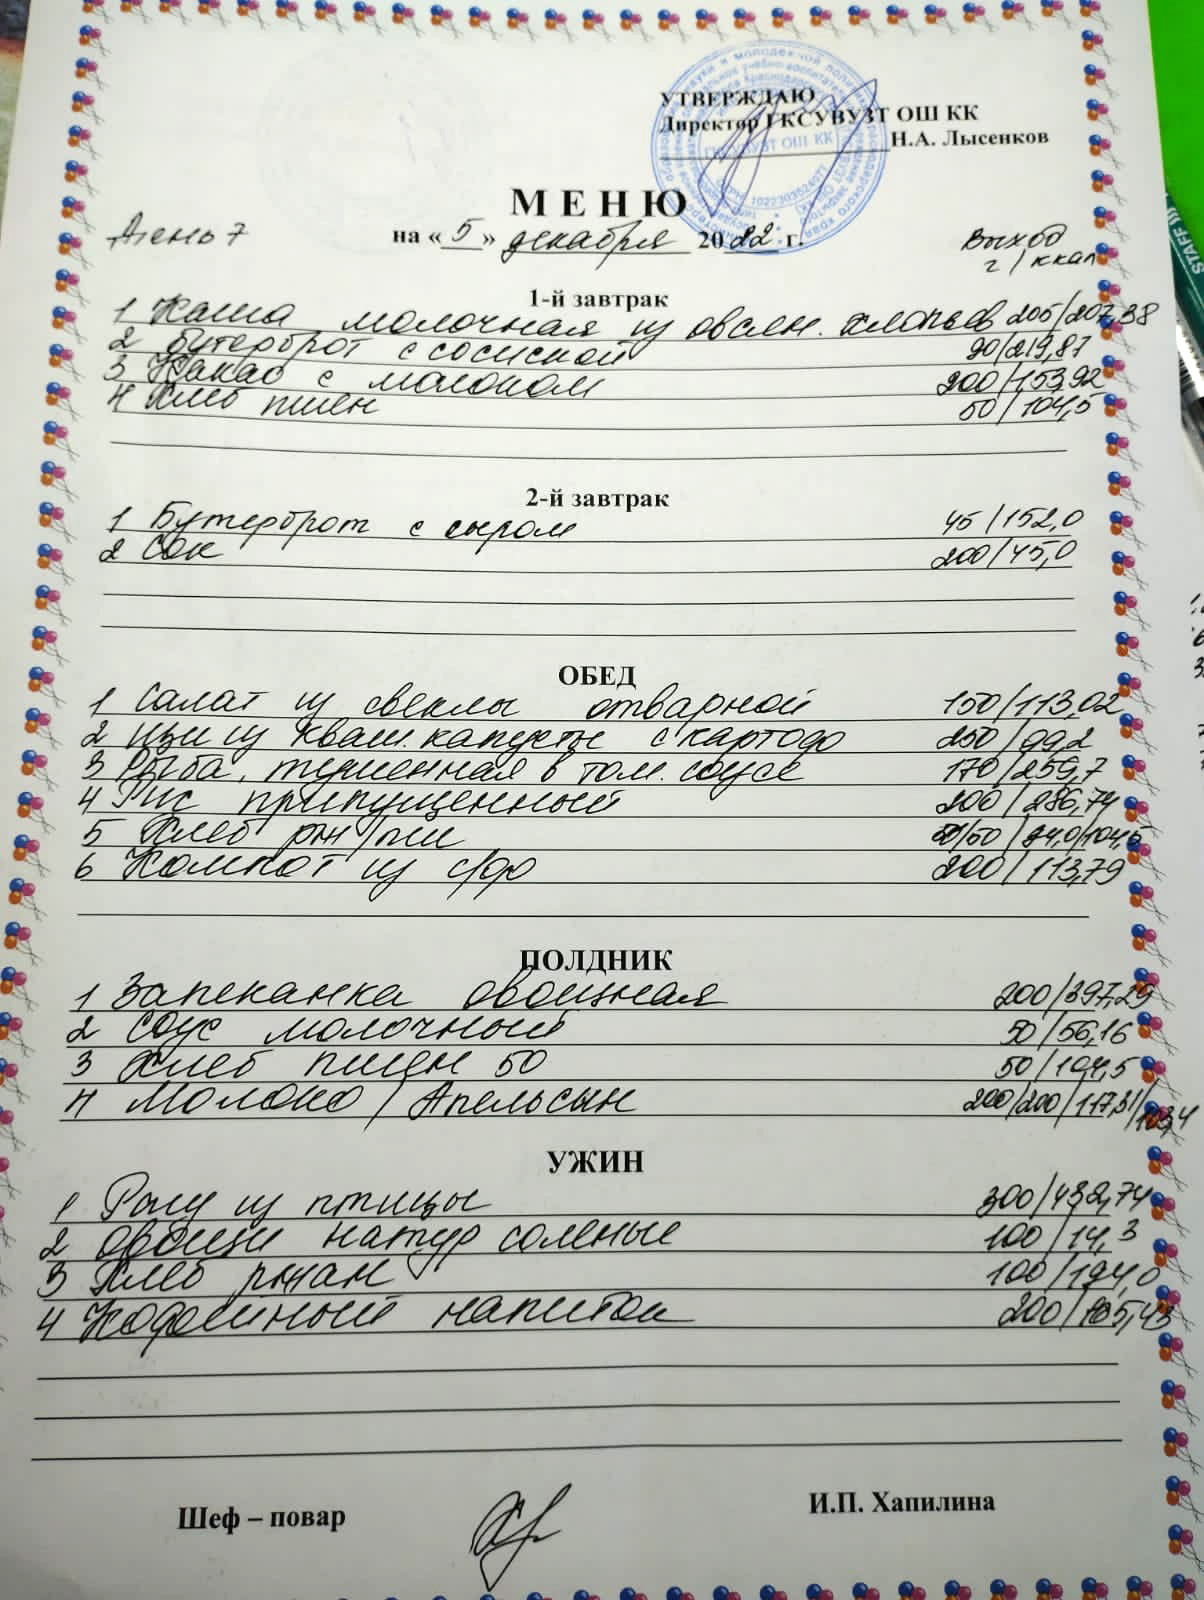 УТВЕРЖДАЮ
Директор ГКСУВУЗТ ОШ КК
Н.А. Лысенков
МЕНЮ
День 7
на «5» декабря 2022 г.
Выход
г/ккал
1-й завтрак
1 Каша молочная из овсян. хлопьев 205/207,38
2 Бутерброт с сосиской 90/219,87
3 Какао с молоком 200/153,92
4 Хлеб пшен 50/104,5
2-й завтрак
1 Бутерброт с сыром 45/152,0
2 Сок 200/45,0
ОБЕД
1 Салат из свеклы отварной 150/113,02
2 Щи из кваш. капусты с картофо 250/99,2
3 Рыба, тушенная в том. соусе 170/259,7
4 Рис припущенный 200/286,74
5 Хлеб рж/пш 50/50/94,0/104,5
6 Компот из с/фр 200/113,79
ПОЛДНИК
1 Запеканка овощная 200/397,29
2 Соус молочный 50/56,16
3 Хлеб пшен 50 50/104,5
4 Молоко/Апельсин 200/200/117,31/103,4
УЖИН
1 Рагу из птицы 300/432,74
2 Овощи натур соленые 100/14,3
3 Хлеб ржан 100/194,0
4 Кофейный напиток 200/105,43
Шеф – повар
И.П. Хапилина